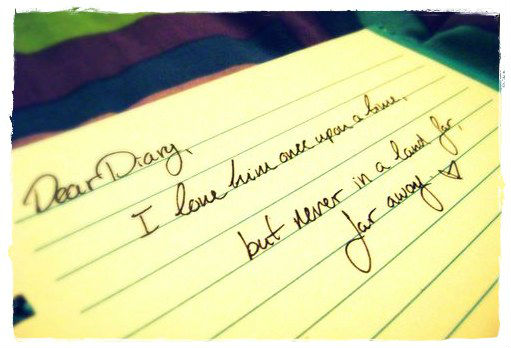 Dear Diary,
I love him once upon a time,
but never in a land far,
far away. ♡